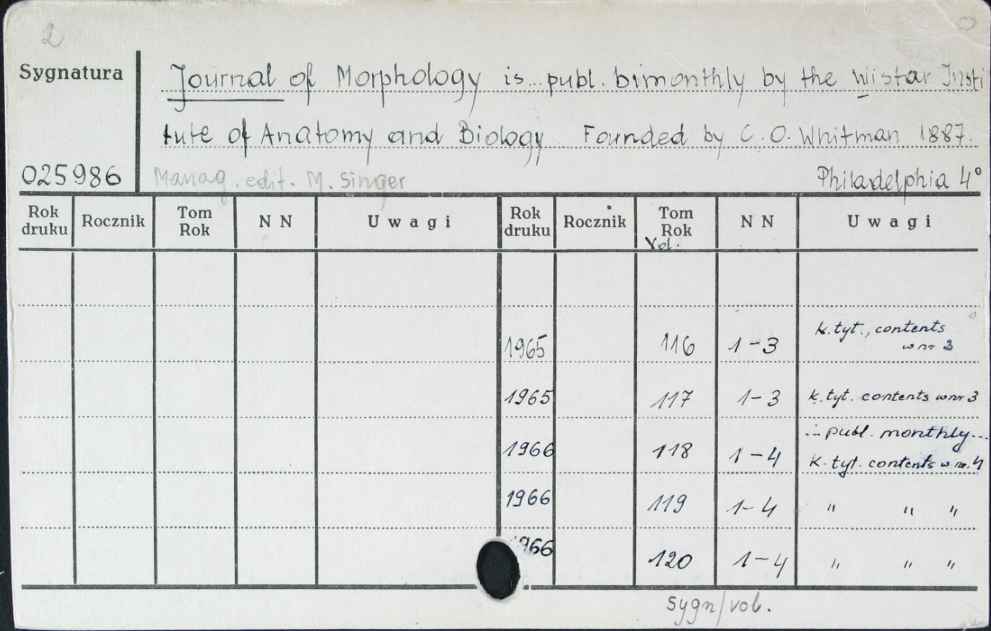 2
Sygnatura
Journal of Morphology is... publ. bimonthly by the Wistar Insti
tute of Anatomy and Biology Founded by C.O. Whitman 1887.
025986
Manag. edit. M. Singer
Philadelphia 4°
Rok druku Rocznik Tom Rok N N Uwagi Rok druku Rocznik Tom Rok Vol. N N Uwagi
1965 116 1-3 k. tyt., contents
w nr. 3
1965 117 1-3 k. tyt. contents w nr 3
... publ. monthly...
1966 118 1-4 k. tyt. contents w nr. 4
1966 119 1-4 " " "
1966 120 1-4 " " "
Sygn/vol.